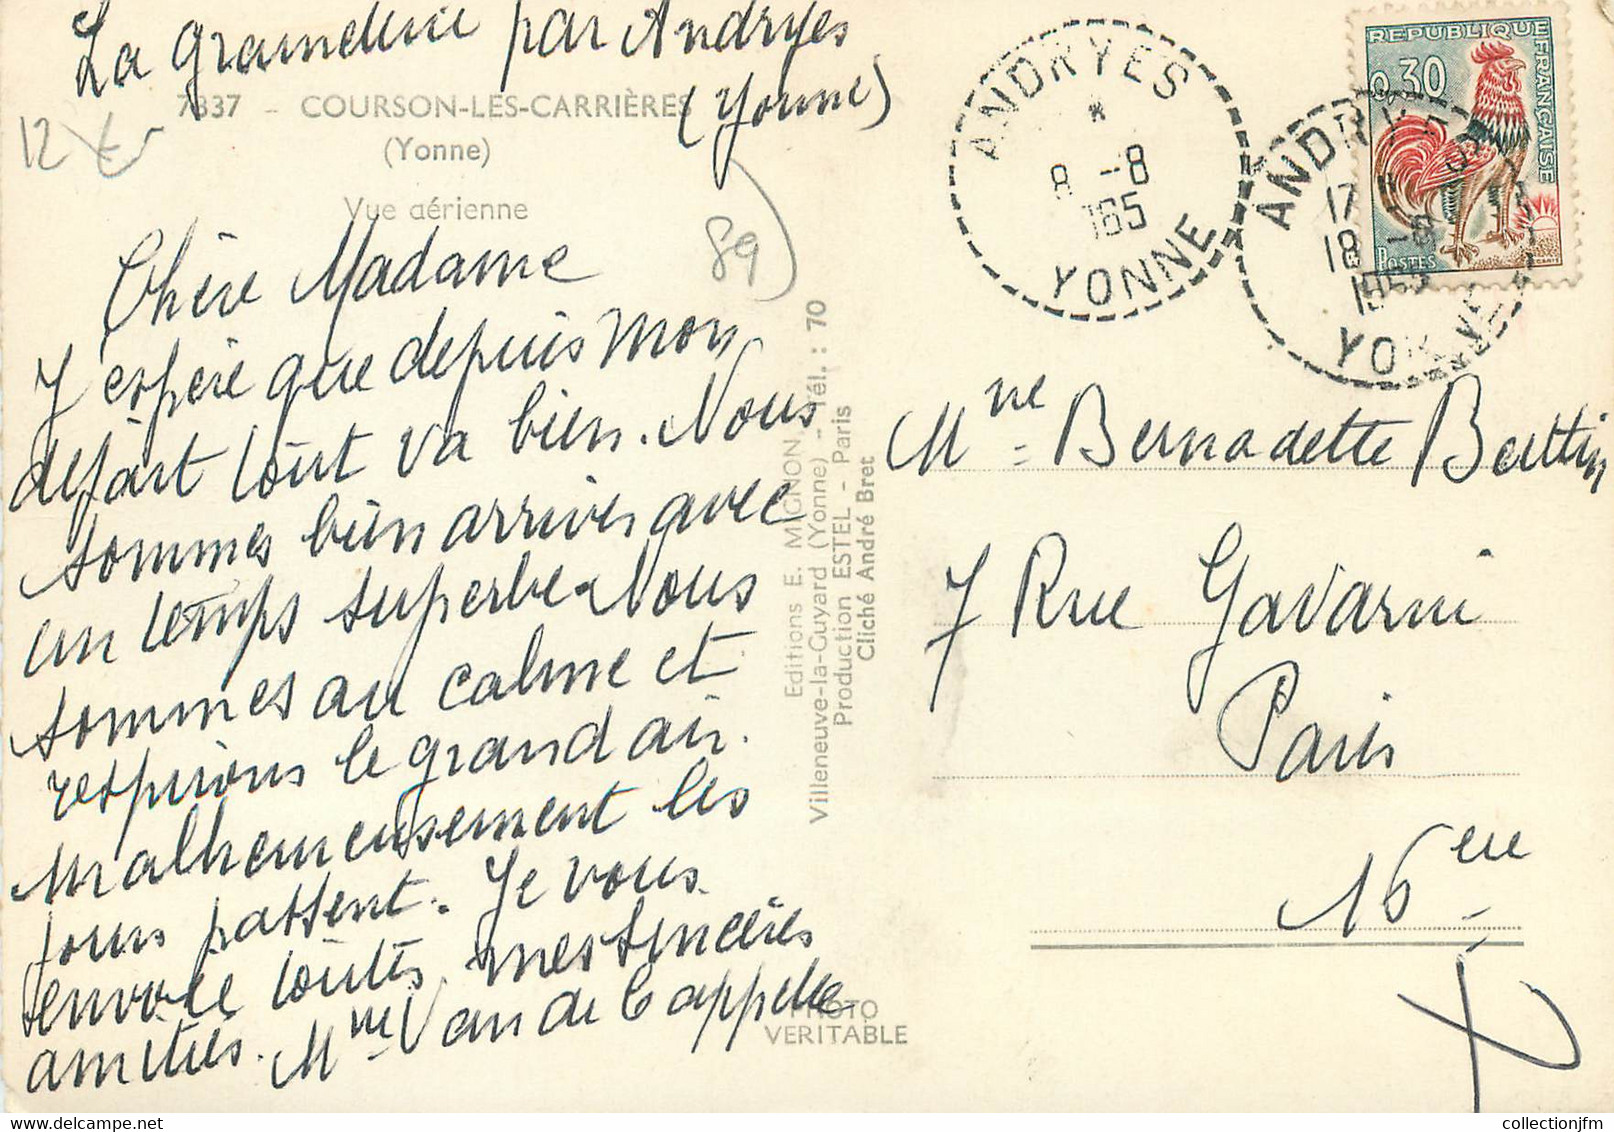 La gramdeur par Andryes
(Yonne)
7337 - COURSON-LES-CARRIÈRES
(Yonne)
Vue aérienne
12
89
Chère Madame
J espère que depuis mon
départ tout va bien. Nous
sommes bien arrives avec
un temps superbe. Nous
sommes au calme et
respirons le grand air.
Malheureusement les
jours passent. Je vous
envoie toutes mes sincères
amitiés. Mme Van de Cappelle
Editions E. MIGNON
Villeneuve-la-Guyard (Yonne) - Tél. : 70
Production ESTEL - Paris
Cliché André Bret
PHOTO
VERITABLE
ANDRYES
*
8 -8
165
YONNE
REPUBLIQUE FRANÇAISE
0,30
POSTES
ANDRYES
17
18 -8
1965
YONNE
Mme Bernadette
7 Rue Gavarni
Paris
16eme
www.collectionjfm.com